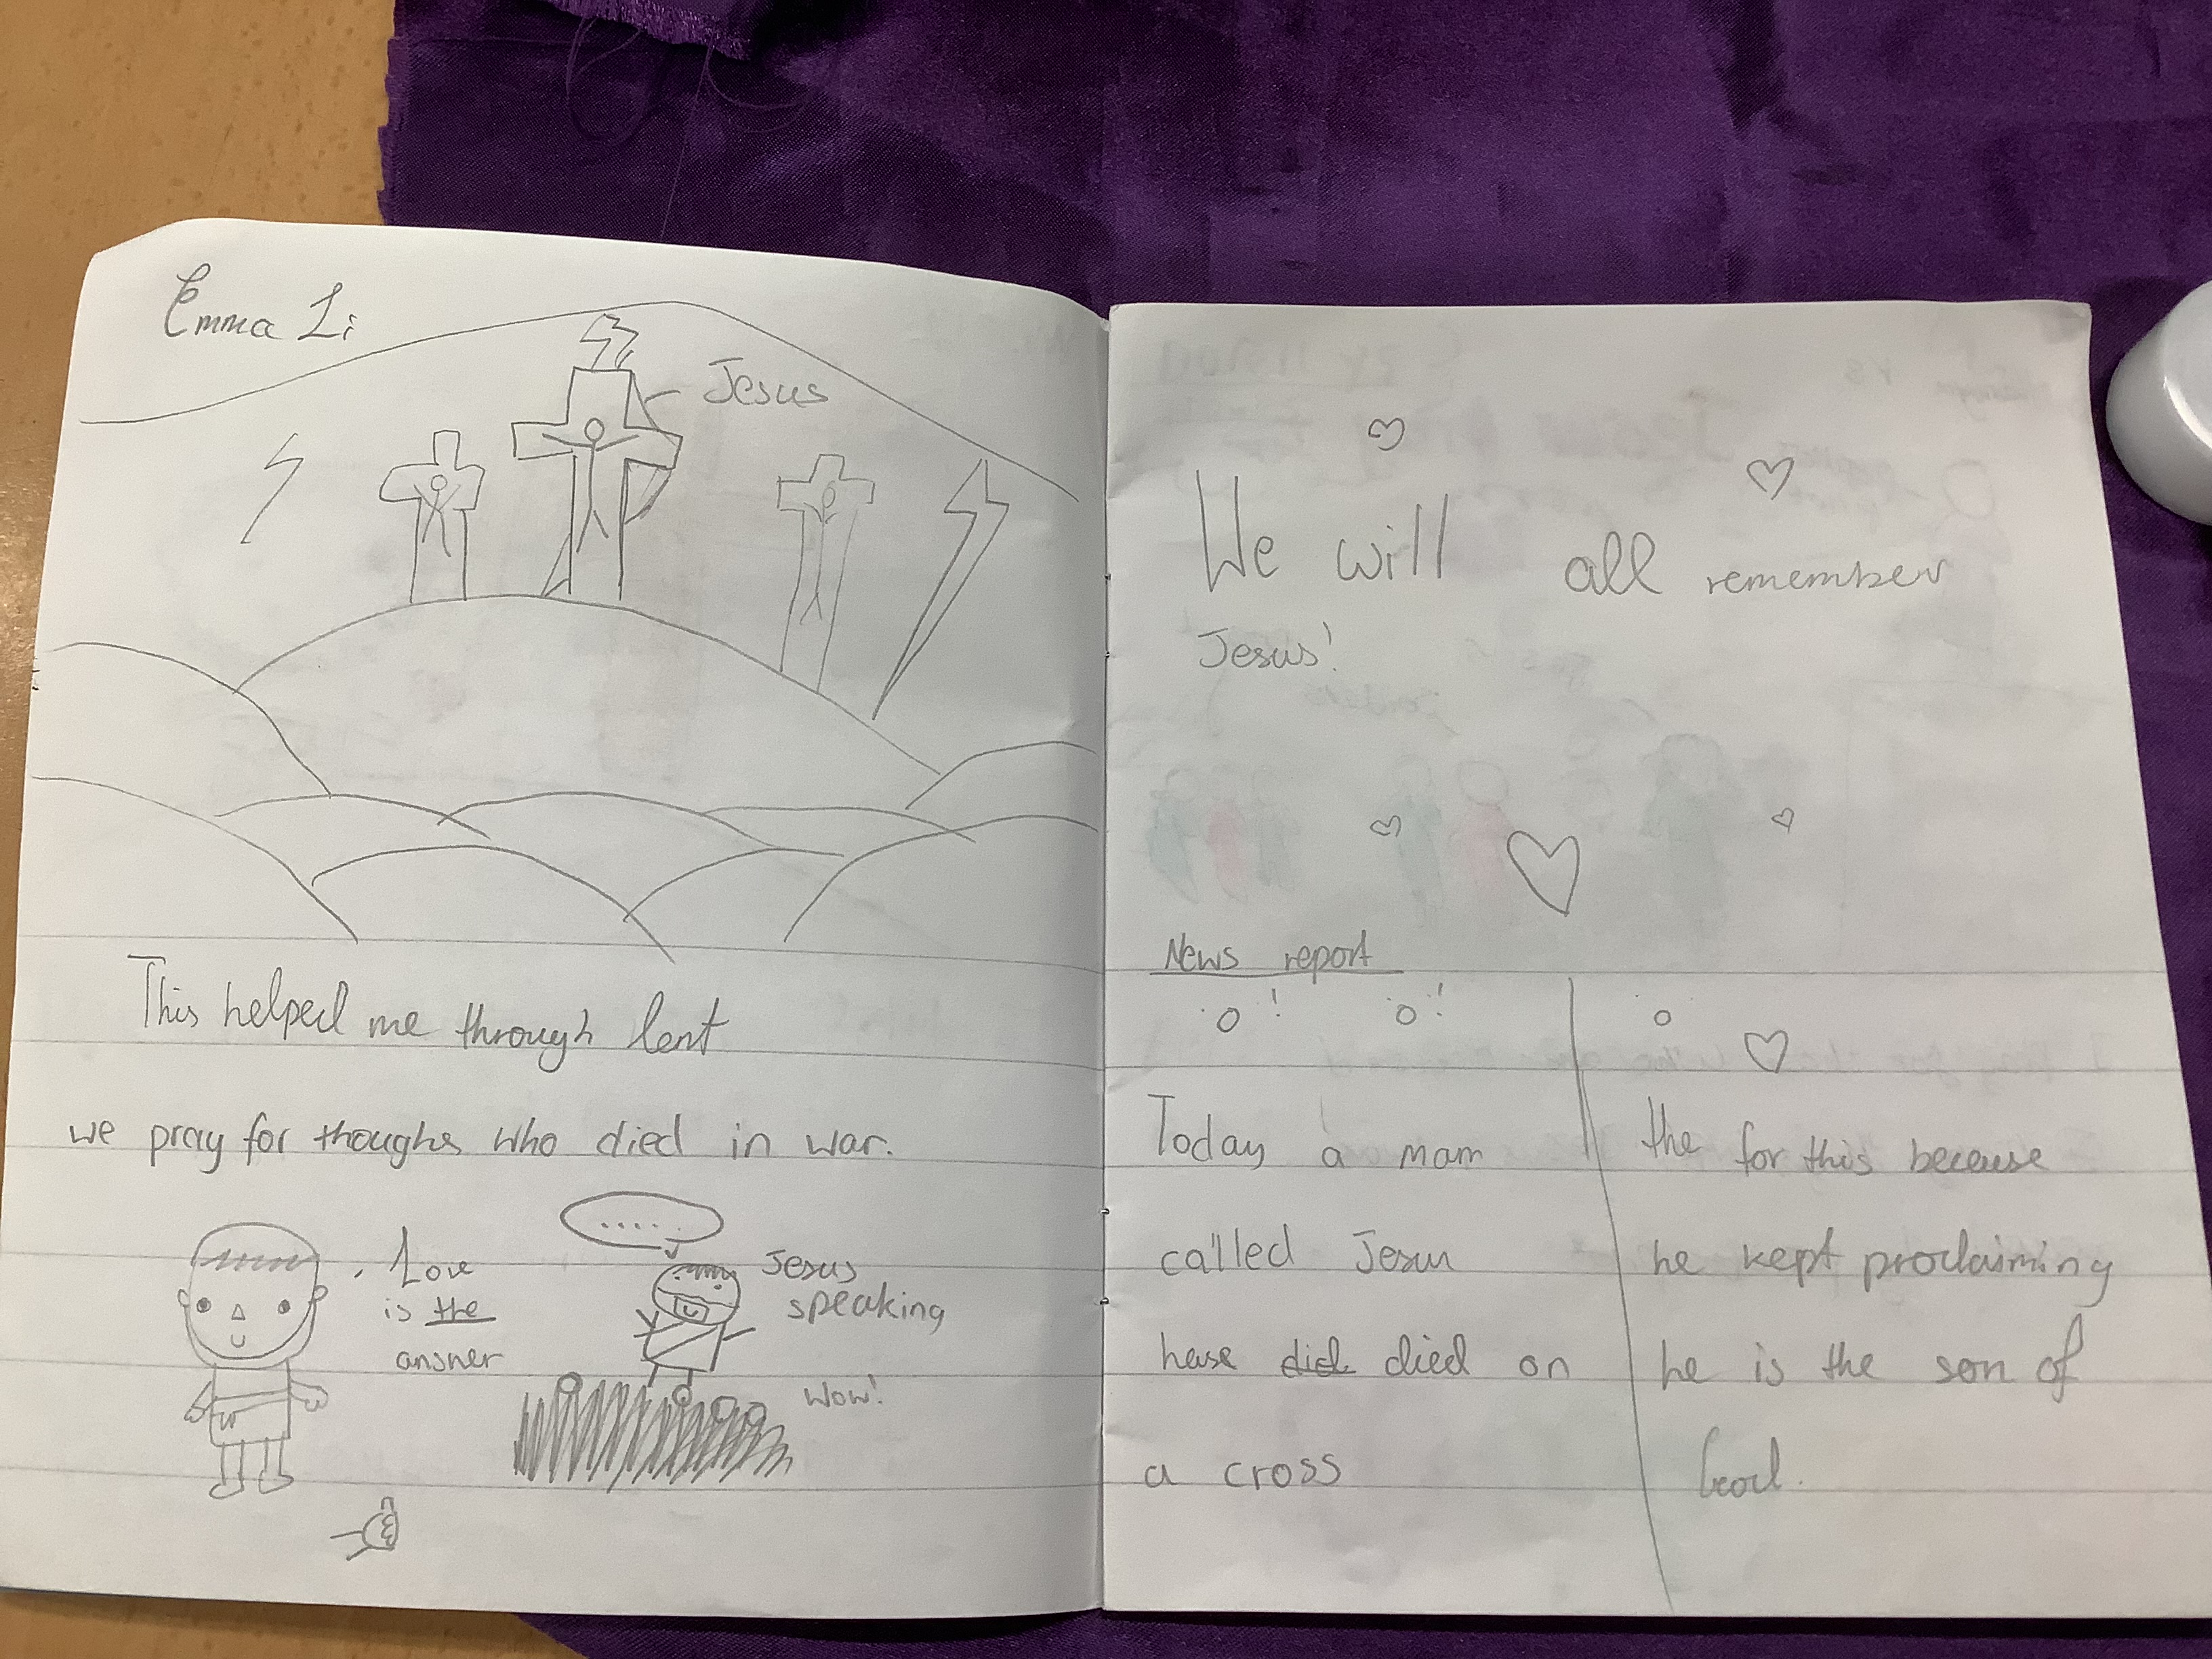 Emma Li
Jesus
This helped me through lent
we pray for thoughs who died in war.
Love
is the
answer
.....
Jesus
speaking
wow!
We will all remember
Jesus!
News report
Today a man
called Jesus
have did died on
a cross
the for this because
he kept proclaiming
he is the son of
God.